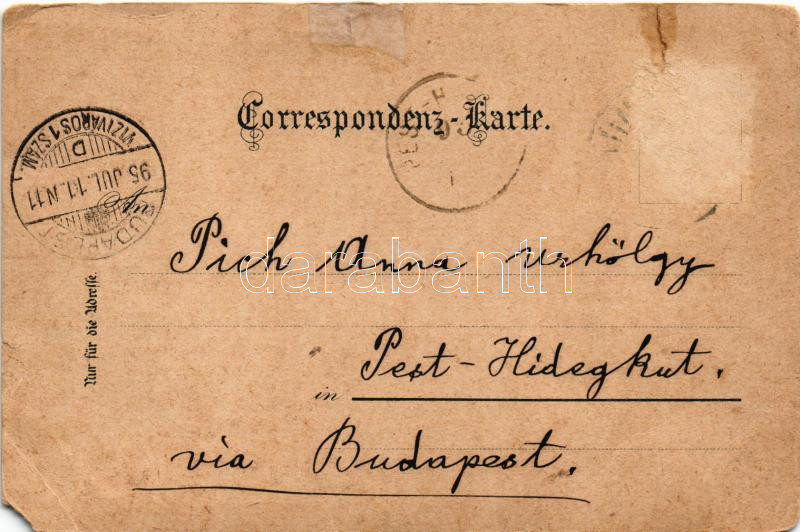 Correspondenz-Karte.
BUDAPEST
VIZIVÁROS 1 SZÁM.
D
95 JUL. 11. N 11
An
Pich Anna Urhölgy
darabanth
in Pest-Hidegkut.
via Budapest.
Nur für die Adresse.